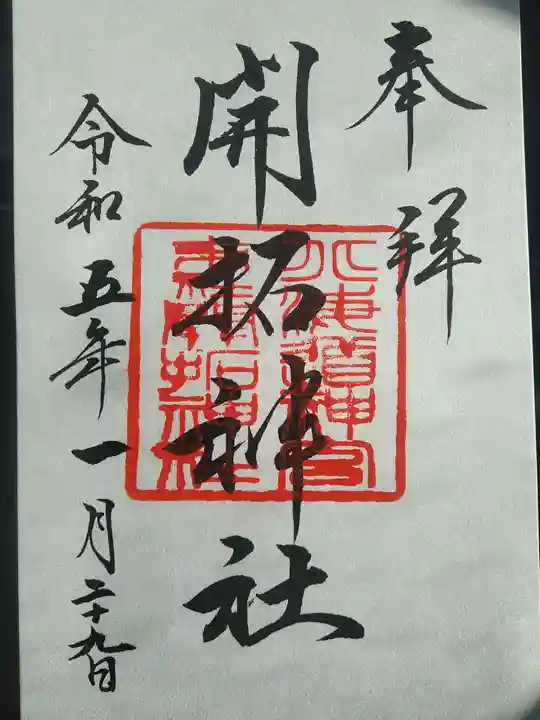 奉拝
開拓神社
北海道神宮
末社開拓神社
令和五年一月二十九日